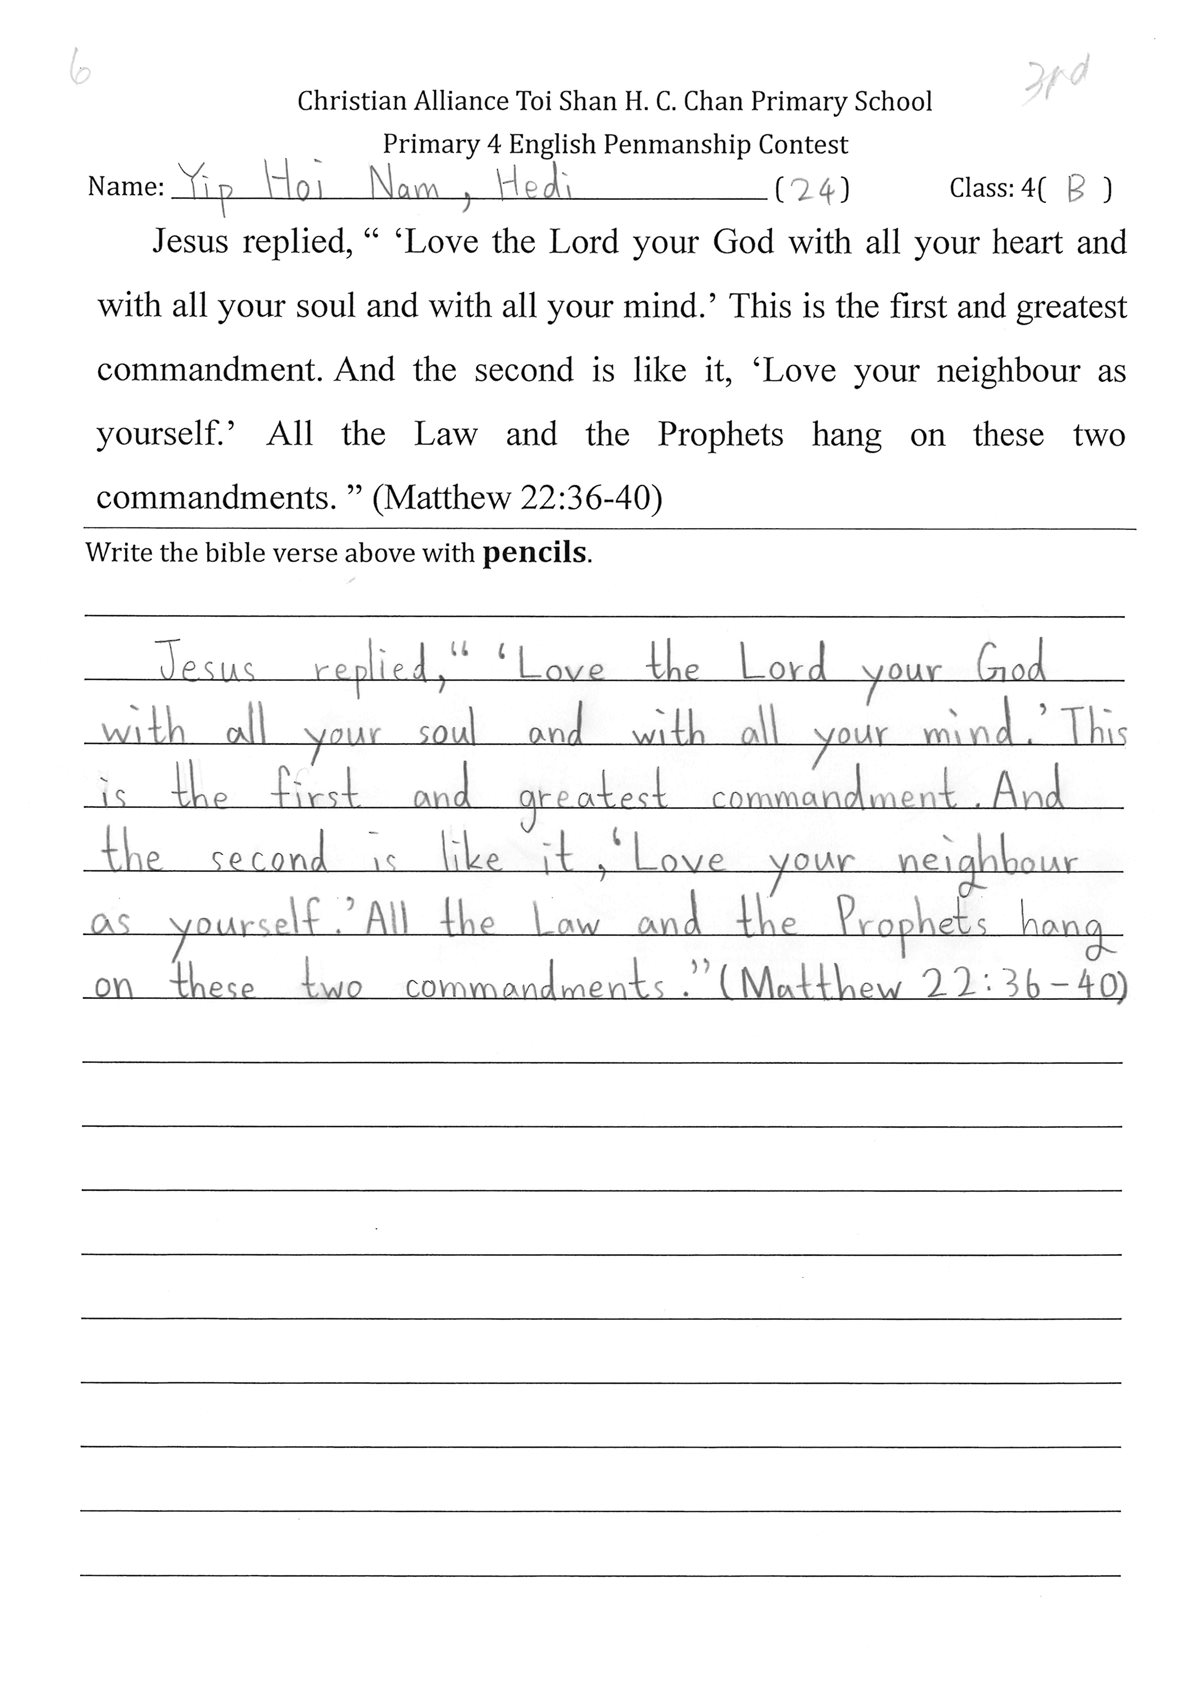 6
3rd
Christian Alliance Toi Shan H. C. Chan Primary School
Primary 4 English Penmanship Contest
Name: Yip Hoi Nam, Hedi (24) Class: 4( B )
Jesus replied, “ ‘Love the Lord your God with all your heart and
with all your soul and with all your mind.’ This is the first and greatest
commandment. And the second is like it, ‘Love your neighbour as
yourself.’ All the Law and the Prophets hang on these two
commandments. ” (Matthew 22:36-40)
Write the bible verse above with pencils.
Jesus replied, “ ‘Love the Lord your God
with all your soul and with all your mind.’ This
is the first and greatest commandment. And
the second is like it, ‘Love your neighbour
as yourself.’ All the Law and the Prophets hang
on these two commandments.” (Matthew 22:36-40)